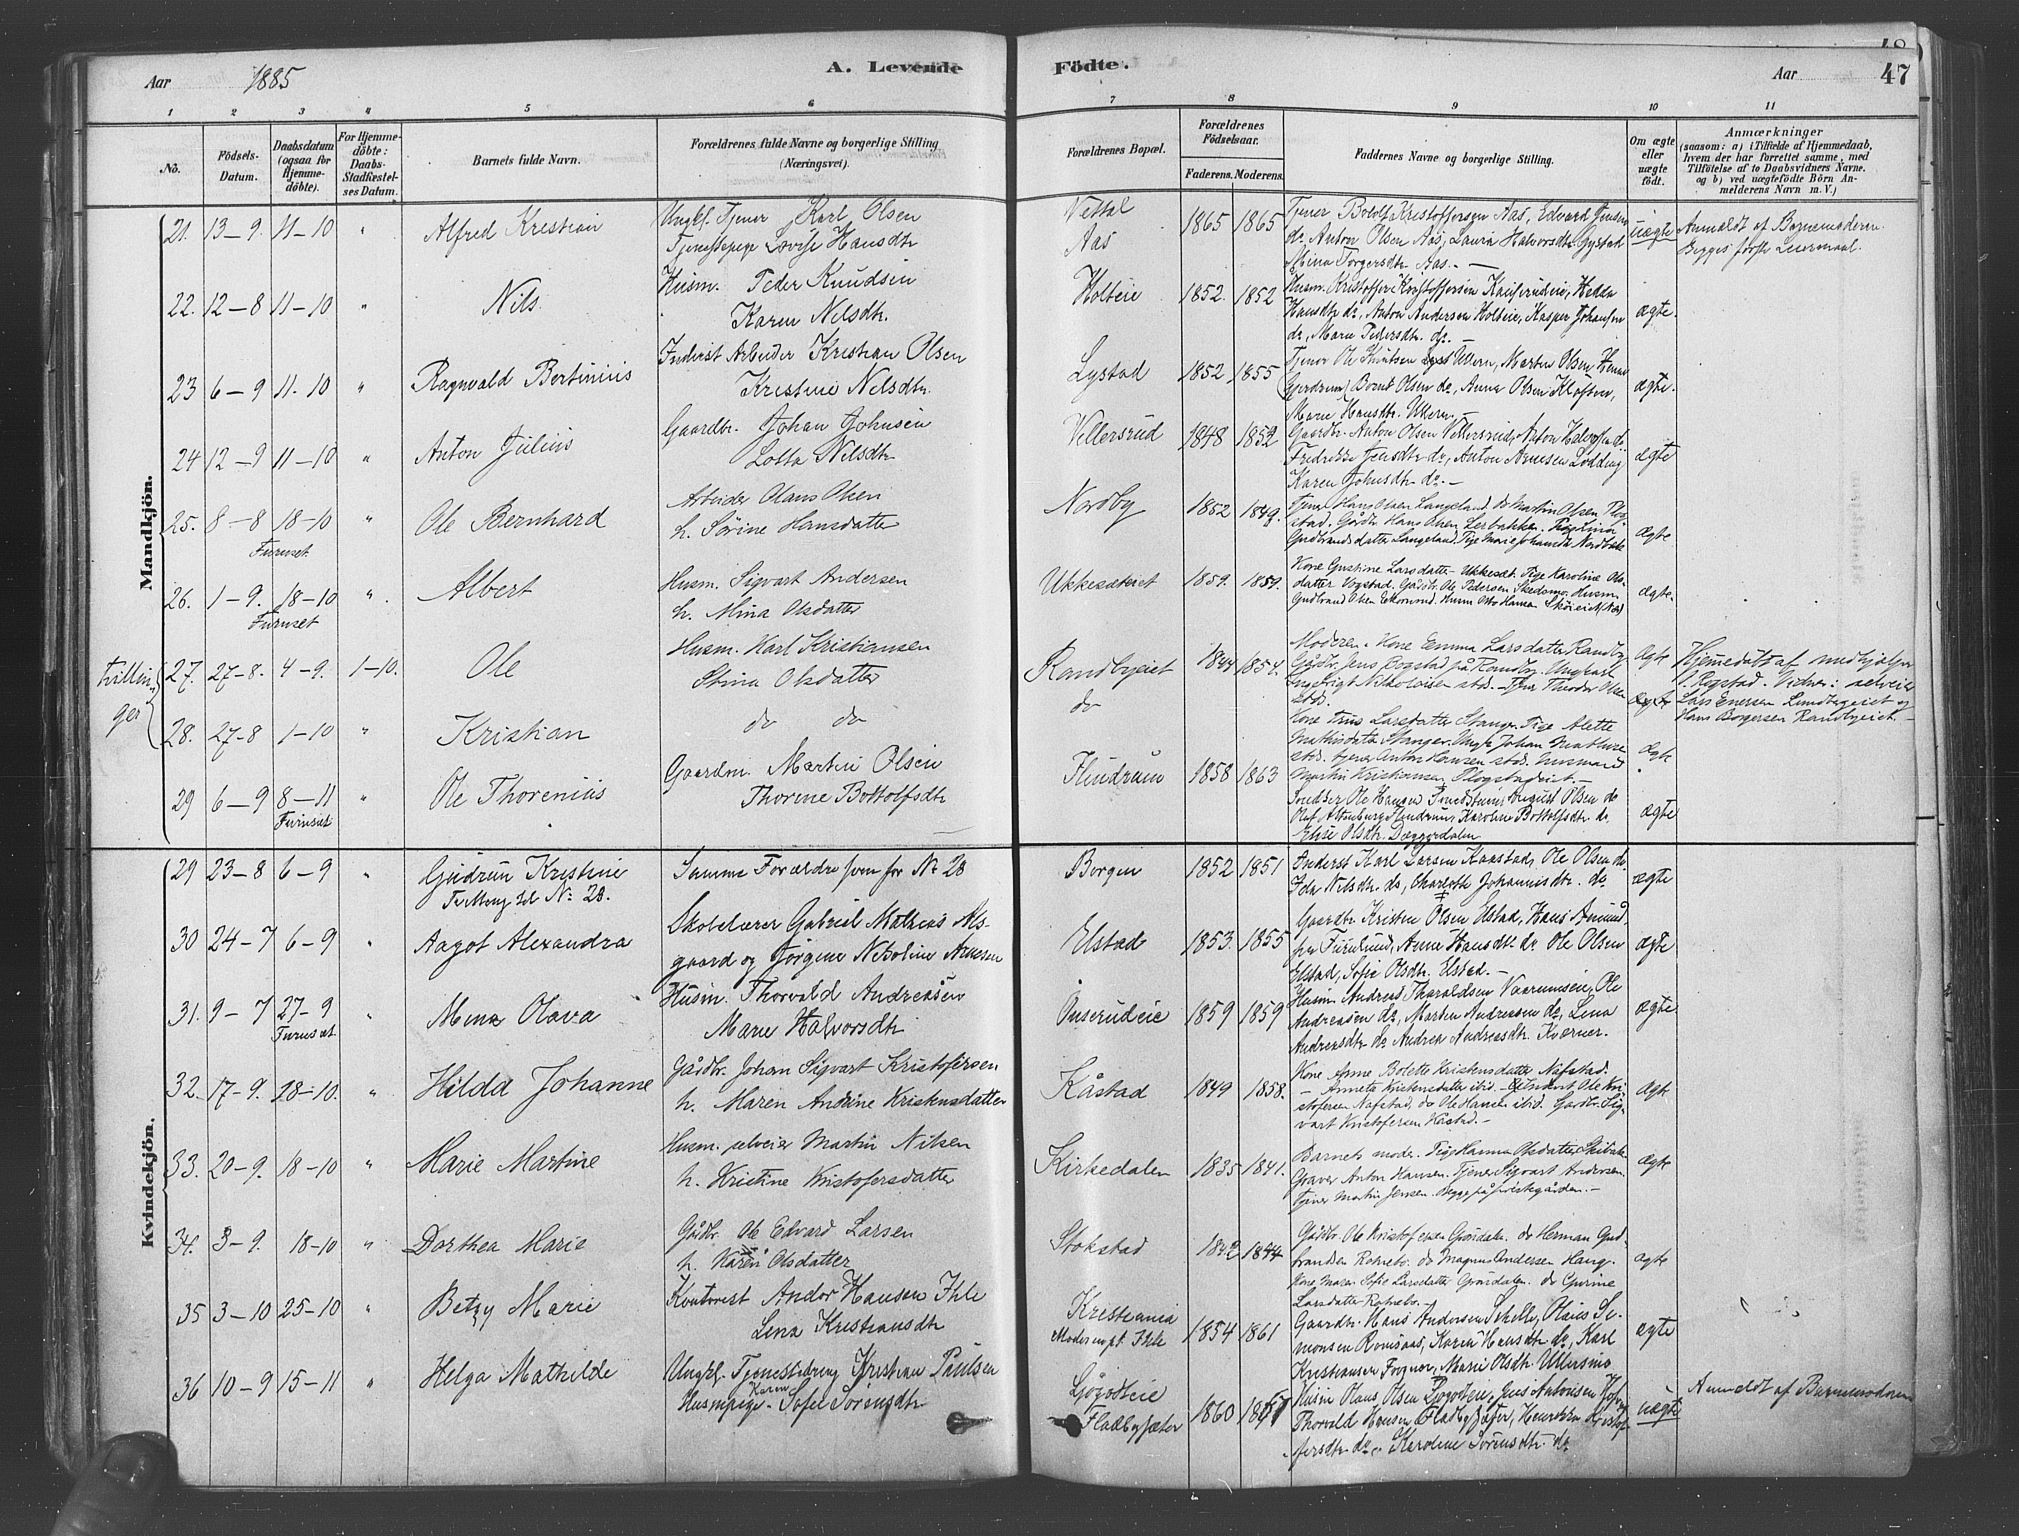 Aar 1885
A. Levende Födte.
Aar
47
1 2 3 4 5 6 7 8 9 10 11
No.
Födsels-Datum.
Daabsdatum (ogsaa for Hjemme-döbte).
For Hjemme-döbte: Daabs-Stadfæstel-ses Datum.
Barnets fulde Navn.
Forældrenes fulde Navne og borgerlige Stilling (Næringsvei).
Forældrenes Bopæl.
Forældrenes Födselsaar.
Faderens. Moderens.
Faddernes Navne og borgerlige Stilling.
Om ægte eller uægte födt.
Anmærkninger
(saasom: a) i Tilfælde af Hjemmedaab,
hvem der har forrettet samme, med
Tilföielse af to Daabsvidners Navne,
og b) ved uægtefödte Börn An-
melderens Navn m. V.)
Mandkjön.
21. 13-9. 11-10 " Alfred Kristian
Ungkl. Tjener Karl Olsen
Tjenestepige Lovise Hansdtr
Aas
1865 1865
Tjener Bololf Kristoffersen Aas, Edvard Jensen
do. Anton Olsen Aas, Laura Halvorsdtr. Gystad
Mina Torgersdtr. Aas. —
uægte
Anmeldt af Barnemoderen.
Begges første Leiermaal.
22. 12-8 11-10 " Nils.
Husm. Peder Knudsen
Karen Nilsdtr.
Holteie
1852. 1852
Husm. Kristoffer Kristoffersen Hedda
Hansdtr do, Anton Andersen Holteie, Kasper Johansen
do, Maren Pedersdtr. do. —
ægte.
23 6-9 11-10 " Ragnvald Bertinius
Inderst Arbeider Kristian Olsen
Kristine Nilsdtr.
Lystad
1852 1855
Tjener Ole Knutsen Ukern, Marten Olsen
Gjerdrum, Bernt Olsen do, Anna Olsen Kløften,
Marie Hansdtr. Ukern. —
ægte.
24 12-9 11-10 " Anton Julius
Gaardbr. Johan Johnsen
Lotta Nilsdtr
Vellersrud
1848 1852
Gaardbr. Anton Olsen Vellersrud, Anton
Fredrikke Jensdtr do, Anton Arnesen Lødding
Karen Johnsdtr do. —
ægte
25. 8-8 18-10 " Ole Bernhard
Furuset
Arbeider Olaus Olsen
h. Sørine Hansdatter
Nordby
1852 1849.
Tjener Hans Olsen Langeland do Martin Olsen
stad. Gårdbr Hans Olsen Lerbakken. Pige Lina
Gudbrandsdatter Langeland, Pige Marie Johansdtr Nordby
ægte
26. 1-9. 18-10 ". Albert
Furuset
Husm. Sigvart Andersen
h. Mina Olsdatter
Ukkesæteiet
1859. 1859.
Kone Gustine Larsdatter Ukkesæt. Pige Karoline Ols-
datter Vogstad. Gårdbr. Ole Pedersen Skedsmo. Husm.
Gudbrand Olsen
ægte.
tvillin-
ger
27. 27-8. 4-9. 1-10. Ole
Husm. Karl Kristiansen
Stina Olsdatter
Randbyeiet
1844 1854.
Moderen. Kone Emma Larsdatter Randby
Gårdbr. Jens Rogstad på Randby. Ungkarl
Ingebrigt Nikolaisen stds. — Tjener Theodor Olsen
stds.
ægte
Hjemmedøbt af medhjælper
J. Rogstad. Vidner: selveier
Lars Enersen Lundbyeiet og
Hans Borgersen Randbyeiet. —
28. 27-8 1-10 " Kristian
do do
do
Kone Larsdatter Stanger. Pige Alette
Mathisdatter Stanger. Ungk. Johan Mathisen
stds. tjener Anton Hansen stds. husmand
Martin Kristiansen Plogstadeiet. —
ægte
29 6-9 8-11 " Ole Thorenius
Furuset
Gaardm. Martin Olsen
Thorine Bottolfsdtr
Flindrum
1858 1863
Snedker Ole Hansen August Olsen do
Olaf Altenburg Flindrum, Karoline Bottolfsdtr. do.
Elise Olsdtr. Døggerdalen
ægte
Kvindekjön.
29 23-8 6-9 " Gudrun Kristine
Tvilling til No. 28.
Samme Forældre som for No 28
Borgen
1852 1851
Inderst Karl Larsen Kaastad, Ole Olsen do
Ida Nilsdtr. do, Charlotte Johannisdtr. do.
ægte
30 24-7 6-9 " Aagot Alexandra
Skolelærer Gabriel Mathias Als-
gaard og Jørgine Nikoline Arnesen
Elstad
1853. 1855
Gaardbr. Kristen Olsen Elstad, Hans Amund-
sen Furulund, Anne Hansdtr. do Ole Olsen
Elstad, Sofie Olsdtr. Elstad. —
ægte
31. 9-7 27-9 " Mena Olava
Furuset
Husm. Thorvald Andreasen
Marie Halvorsdtr
Onserudeie
1859 1859
Husm. Andreas Tharaldsen Ole
Andreasen do, Martin Andreasen do, Lena
Andreasdtr do Andrea Andreasdtr. Kværner.
ægte
32. 17-9. 18-10. " Hilda Johanne
Gårdbr. Johan Sigvart Kristofersen
h. Maren Andrine Kristensdatter
Kåstad
1849 1858.
Kone Anne Bolette Kristensdatter Nafstad.
— Annette Kristensdatter ibid. — Ole Kri-
stofersen Nafstad, do Ole Hansen ibid. Gårdbr. Sig-
vart Kristofersen Kåstad. —
ægte
33. 20-9. 18-10 " Marie Martine
Husm. selveier Martin Nilsen
h. Kristine Kristofersdatter
Kirkedalen
1835 1841.
Barnets moder. Pige Hanna Olsdatter
Graver Anton Hansen. Tjener Sigvart Andersen
Tjener Martin Jensen. Begge på prestegården. —
ægte
34. 3-9. 18-10 " Dorthea Marie
Gårdbr. Ole Edvard Larsen
h. Karen Olsdatter
Stokstad
1844
Gårdbr. Ole Kristofersen Grøndalen. do Herman Gud-
brandsen Rotnebo. do Magnus Andersen Haug.
Kone Maren Sofie Larsdatter Grøndalen. do Gurine
Larsdatter Rotnebo. —
ægte
35 3-10 25-10 " Betzy Marie
Kontorist Andor Hansen Ihle
Lena Kristiansdtr
Kristiania
Moderen pt. Ihle
1854 1861
Gaardbr. Hans Andersen Olaus Si-
monsen Romsaas, Karen Hansdtr do, Karl
Kristiansen Fogner, Marie Olsdtr. Ullersmo
ægte
36 10-9 15-11 " Helga Mathilde
Ungkl. Tjenestedreng Kristian Paulsen
Husmpige Karen Sofie Sørensdtr
Gogsteie
Fladbysæter
1860
Husm Olaus Olsen
Thorvald Hansen Fladbysæter, Henrikka Kristof-
fersdtr. do, Karoline Sørensdtr. do
uægte
Anmeldt af Barnemoderen